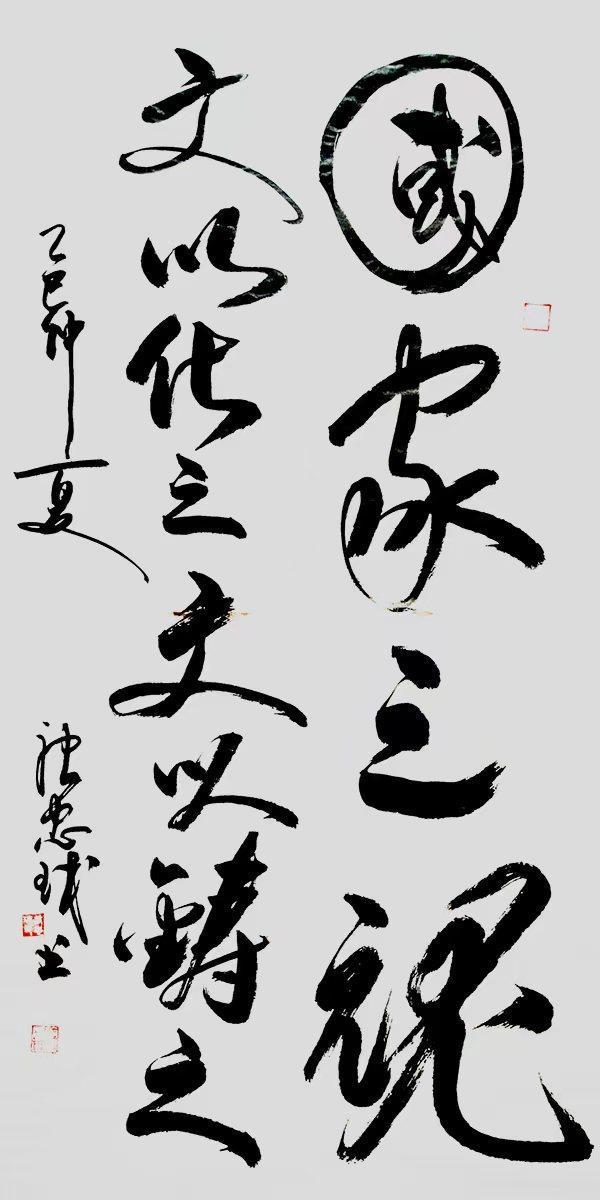 國家之魂
文以化之文以鑄之
乙巳仲夏
书